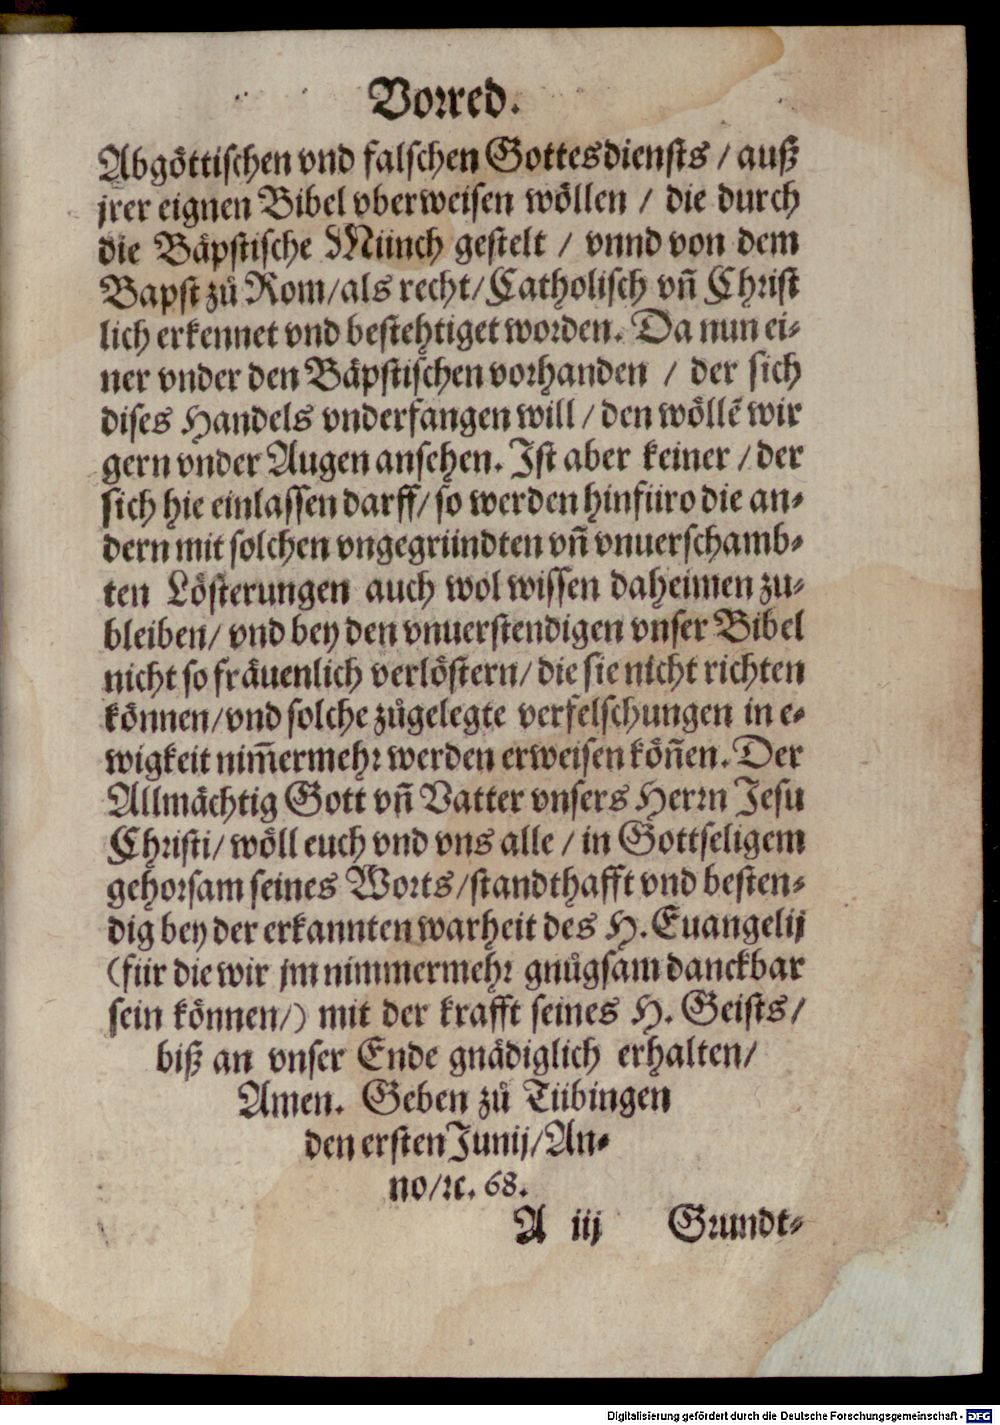 Vorred.
Abgöttischen vnd falschen Gottesdiensts / auß
jrer eignen Bibel vberweisen wöllen / die durch
die Bäpstische Münch gestelt / vnnd von dem
Bapst zů Rom/als recht/Catholisch vñ Christ
lich erkennet vnd bestehtiget worden. Da nun ei-
ner vnder den Bäpstischen vorhanden / der sich
dises Handels vnderfangen will / den wöllẽ wir
gern vnder Augen ansehen. Ist aber keiner / der
sich hie einlassen darff/ so werden hinfüro die an-
dern mit solchen vngegründten vñ vnuerschamb-
ten Lösterungen auch wol wissen daheimen zu-
bleiben/ vnd bey den vnuerstendigen vnser Bibel
nicht so fräuenlich verlöstern/ die sie nicht richten
können/vnd solche zůgelegte verfelschungen in e-
wigkeit nim̃ermehr werden erweisen köñen. Der
Allmächtig Gott vñ Vatter vnsers Herrn Jesu
Christi/ wöll euch vnd vns alle / in Gottseligem
gehorsam seines Worts/standthafft vnd besten-
dig bey der erkannten warheit des H. Euangelij
(für die wir jm nimmermehr gnůgsam danckbar
sein können/) mit der krafft seines H. Geists/
biß an vnser Ende gnädiglich erhalten/
Amen. Geben zů Tübingen
den ersten Junij/An-
no/ꝛc. 68.
A iij Grundt-
Digitalisierung gefördert durch die Deutsche Forschungsgemeinschaft - DFG